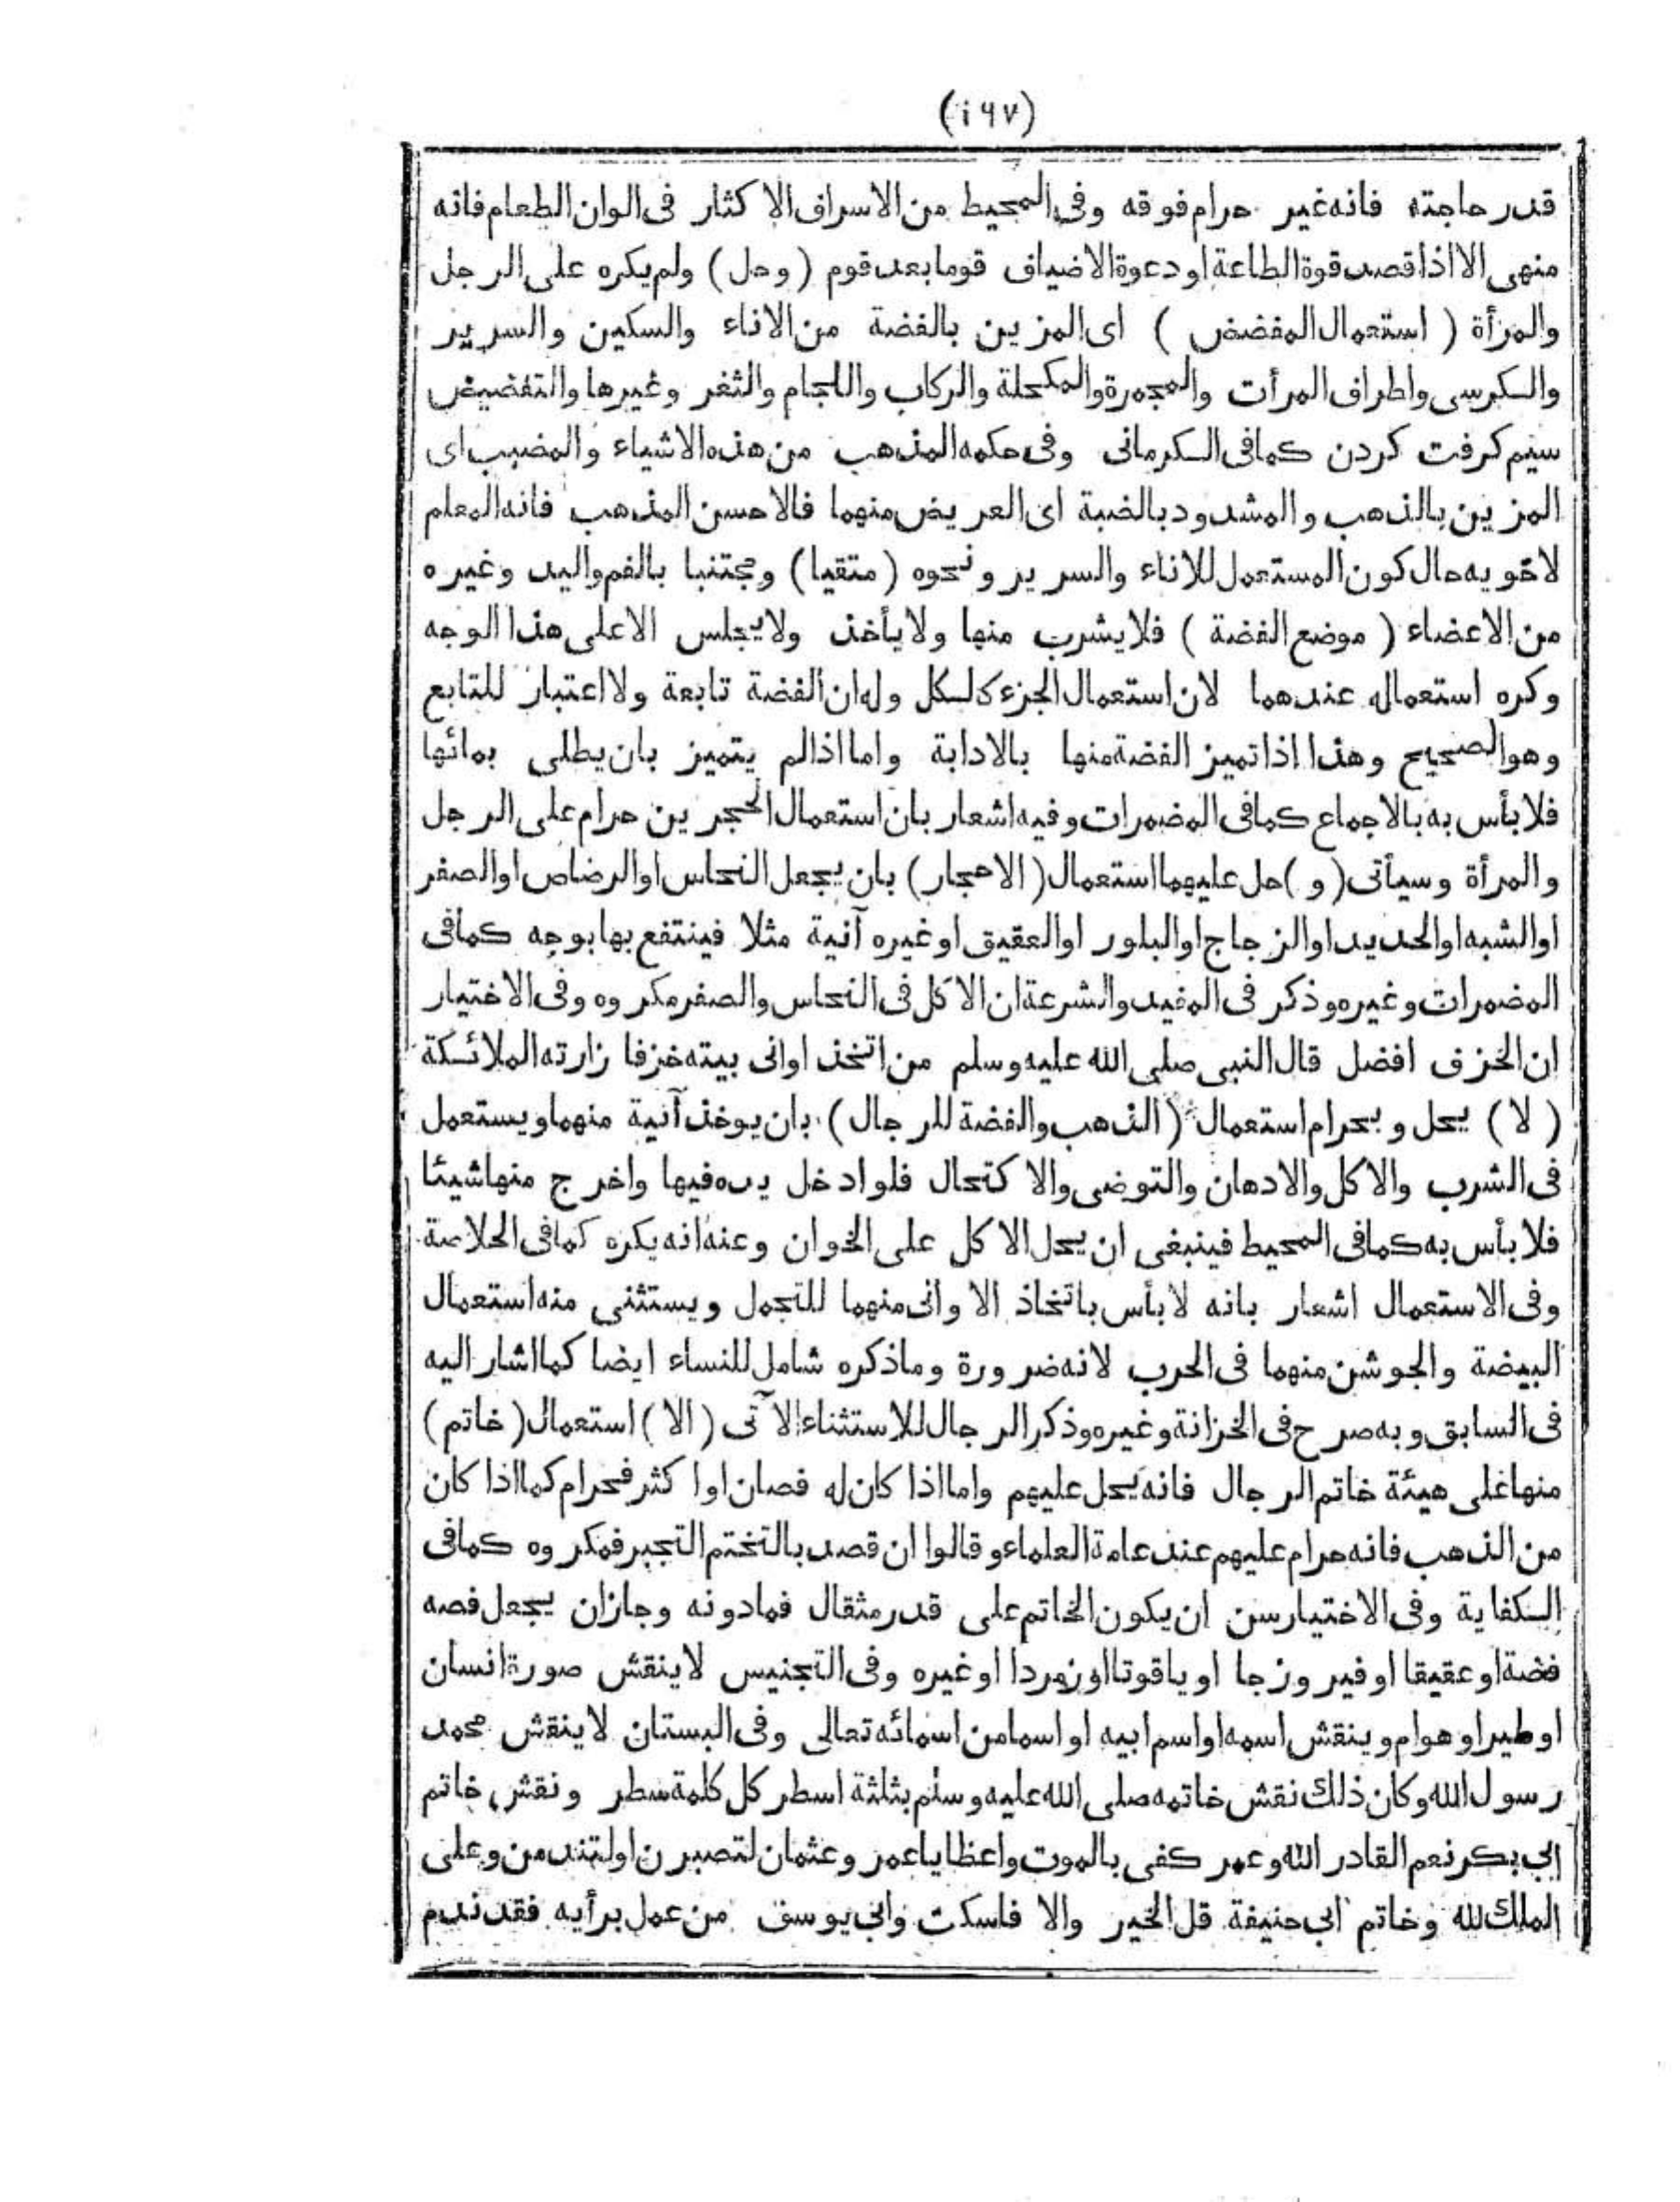 (١٦٧)
قدر حاجته فانه غير حرام فوقه وفى المحيط من الاسراف الاكثار فى الوان الطعام فانه
منهى الا اذا قصد قوة الطاعة او دعوة الاضياف قوما بعد قوم (وحل) ولم يكره على الرجل
والمرأة (استعمال المفضض) اى المزين بالفضة من الاناء والسكين والسرير
والكرسى واطراف المرأت والمجمرة والمكحلة والركاب واللجام والثفر وغيرها والتفضيض
سيم كرفت كردن كمافى الكرمانى وفى حكمه المذهب من هذه الاشياء والمضبب اى
المزين بالذهب والمشدود بالضبة اى العريض منهما فالاحسن المذهب فانه المعلم
لا حال كون المستعمل للاناء والسرير ونحوه (متقيا) ومجتنبا بالفم واليد وغيره
من الاعضاء (موضع الفضة) فلا يشرب منها ولا يأخذ ولا يجلس الا على هذا الوجه
وكره استعماله عندهما لان استعمال الجزء كالكل وله ان الفضة تابعة ولا اعتبار للتابع
وهو الصحيح وهذا اذا تميز الفضة منها بالادابة واما اذا لم يتميز بان يطلى بمائها
فلا بأس به بالاجماع كمافى المضمرات وفيه اشعار بان استعمال الحجرين حرام على الرجل
والمرأة وسيأتى (و) حل عليهما استعمال (الاحجار) بان يجعل النحاس او الرضاص او الصفر
او الشبه او الحديد او الزجاج او البلور او العقيق او غيره آنية مثلا فينتفع بها بوجه كمافى
المضمرات وغيره وذكر فى المفيد والشرعة ان الاكل فى النحاس والصفر مكروه وفى الاختيار
ان الخزف افضل قال النبى صلى الله عليه وسلم من اتخذ اوانى بيته خزفا زارته الملائكة
(لا) يحل ويحرام استعمال (الذهب والفضة للرجال) بان يوخذ آنية منهما ويستعمل
فى الشرب والاكل والادهان والتوضى والاكتحال فلو ادخل يده فيها واخرج منها شيئا
فلا بأس به كمافى المحيط فينبغى ان يحل الاكل على الخوان وعنه انه يكره كمافى الخلاصة
وفى الاستعمال اشعار بانه لا بأس باتخاذ الاوانى منهما للتجمل ويستثنى منه استعمال
البيضة والجوشن منهما فى الحرب لانه ضرورة وما ذكره شامل للنساء ايضا كما اشار اليه
فى السابق وبه صرح فى الخزانة وغيره وذكر الرجال للاستثناء الآتى (الا) استعمال (خاتم)
منها على هيئة خاتم الرجال فانه يحل عليهم واما اذا كان له فصان او اكثر فحرام كما اذا كان
من الذهب فانه حرام عليهم عند عامة العلماء وقالوا ان قصد بالتختم التجبر فمكروه كمافى
الكفاية وفى الاختيار سن ان يكون الخاتم على قدر مثقال فمادونه وجاز ان يجعل فصه
فضة او عقيقا او فيروزجا او ياقوتا او زمردا او غيره وفى التجنيس لا ينقش صورة انسان
او طير او هوام وينقش اسمه او اسم ابيه او اسما من اسمائه تعالى وفى البستان لا ينقش محمد
رسول الله وكان ذلك نقش خاتمه صلى الله عليه وسلم بثلثة اسطر كل كلمة سطر ونقش خاتم
ابى بكر نعم القادر الله وعمر كفى بالموت واعظا ياعمر وعثمان لتصبرن او لتندمن وعلى
الملك لله وخاتم ابى حنيفة قل الخير والا فاسكت وابى يوسف من عمل برأيه فقد ندم